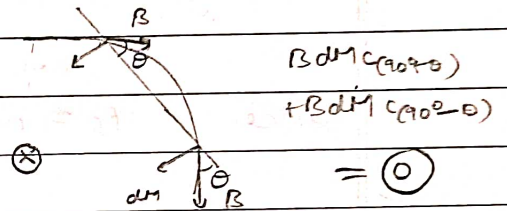 B
θ
B dM C(90+θ)
+ B dM C(90°-θ)
⊗
θ
dM
B
= 0